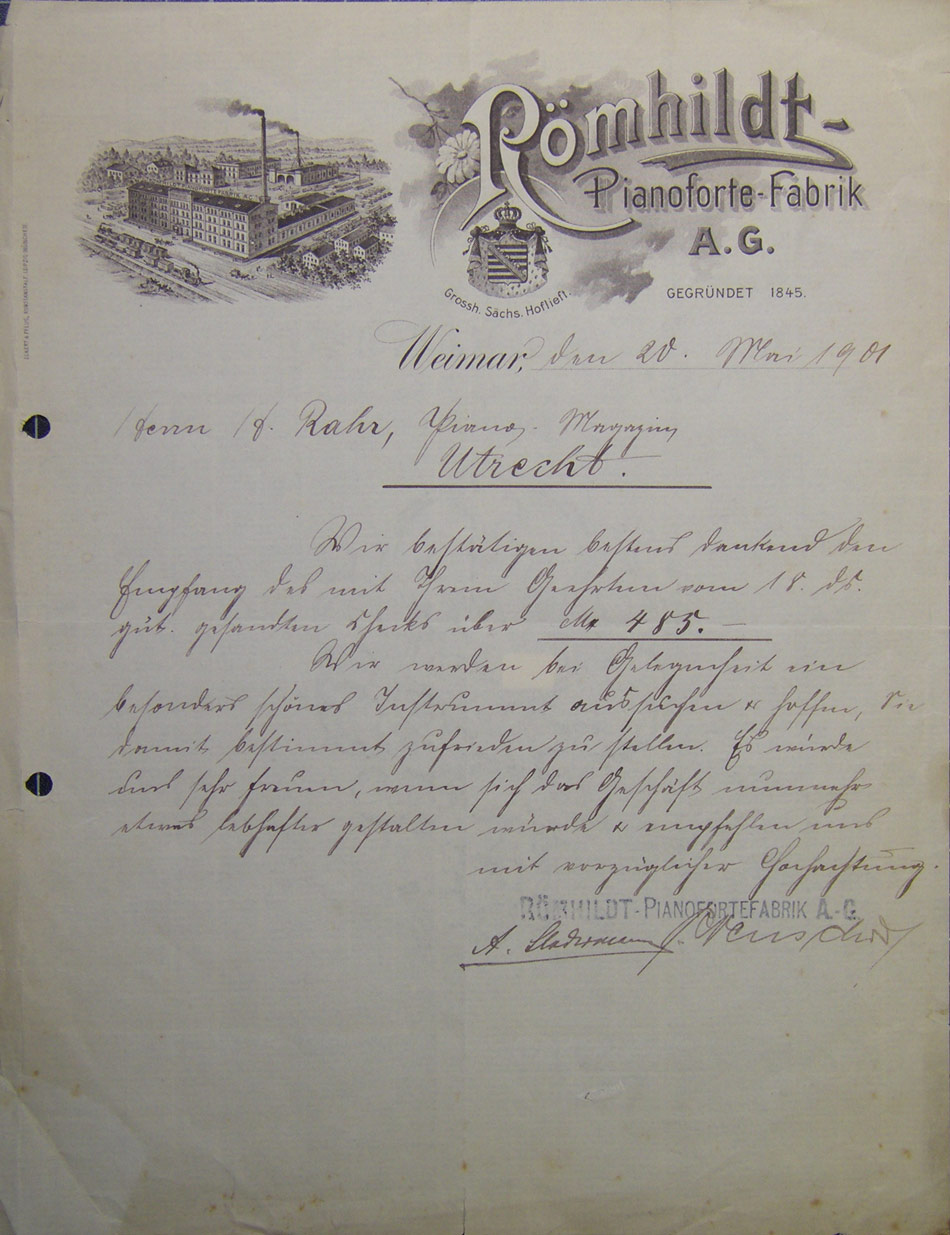 Römhildt-
Pianoforte-Fabrik
A.G.
Grossh. Sächs. Hoflieft.
GEGRÜNDET 1845.
Weimar, den 20. Mai 1901
Herrn H. Rahr, Piano-Magazin
Utrecht.
Wir bestätigen bestens dankend den
Empfang des mit Ihrem Geehrten vom 18. ds.
güt. gesandten Checks über M 485.–
Wir werden bei Gelegenheit ein
besonders schönes Instrument aussuchen & hoffen, Sie
damit bestimmt zufrieden zu stellen. Es würde
uns sehr freuen, wenn sich das Geschäft nunmehr
etwas lebhafter gestalten würde & empfehlen uns
mit vorzüglicher Hochachtung.
RÖMHILDT-PIANOFORTEFABRIK A.-G.
A.